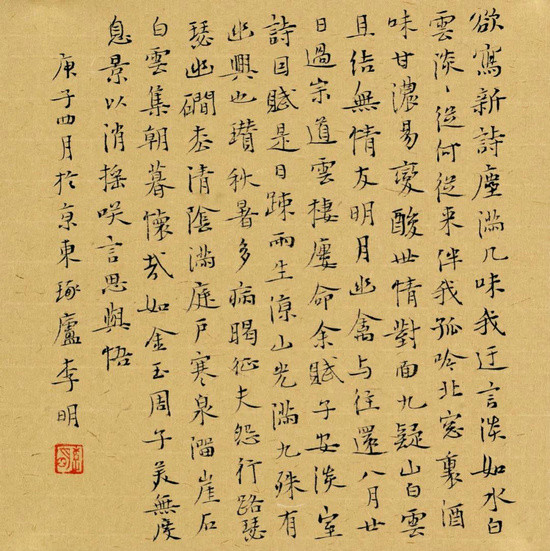 欲寫新詩塵滿几味我迂言淡如水白
雲淡、從何從来伴我孤吟北窓裏酒
味甘濃易變酸世情對面九疑山白雲
且結無情友明月幽禽与往還八月廿
日過宗道雲棲屢命余賦子安淡室
詩因賦是日疎雨生涼山光滿几殊有
幽興也瓚秋暑多病暍征夫怨行路瑟
瑟幽磵松清陰滿庭戶寒泉溜崖石
白雲集朝暮懷哉如金玉周子美無度
息景以消搖咲言思與悟
庚子四月於京東琢廬李明